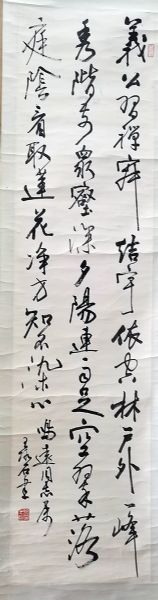 義公習禪寂結宇依空林戶外一峰
秀階前衆壑深夕陽連雨足空翠落
庭陰看取蓮花净方知不染心 鳴遠同志屬